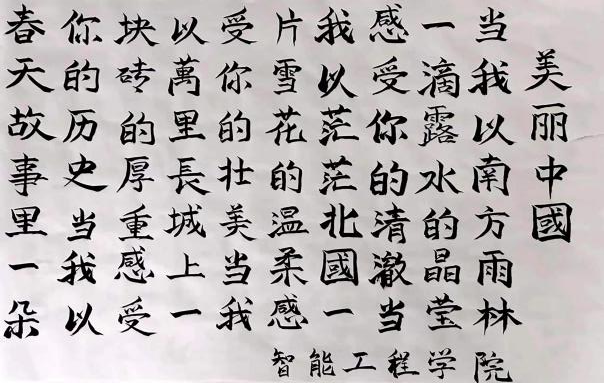 美丽中國
当我以南方雨林
一滴露水的晶莹
感受你的清澈当
我以茫茫北國一
片雪花的温柔感
受你的壮美当我
以萬里長城上一
块砖的厚重感受
你的历史当我以
春天故事里一朵
智能工程学院